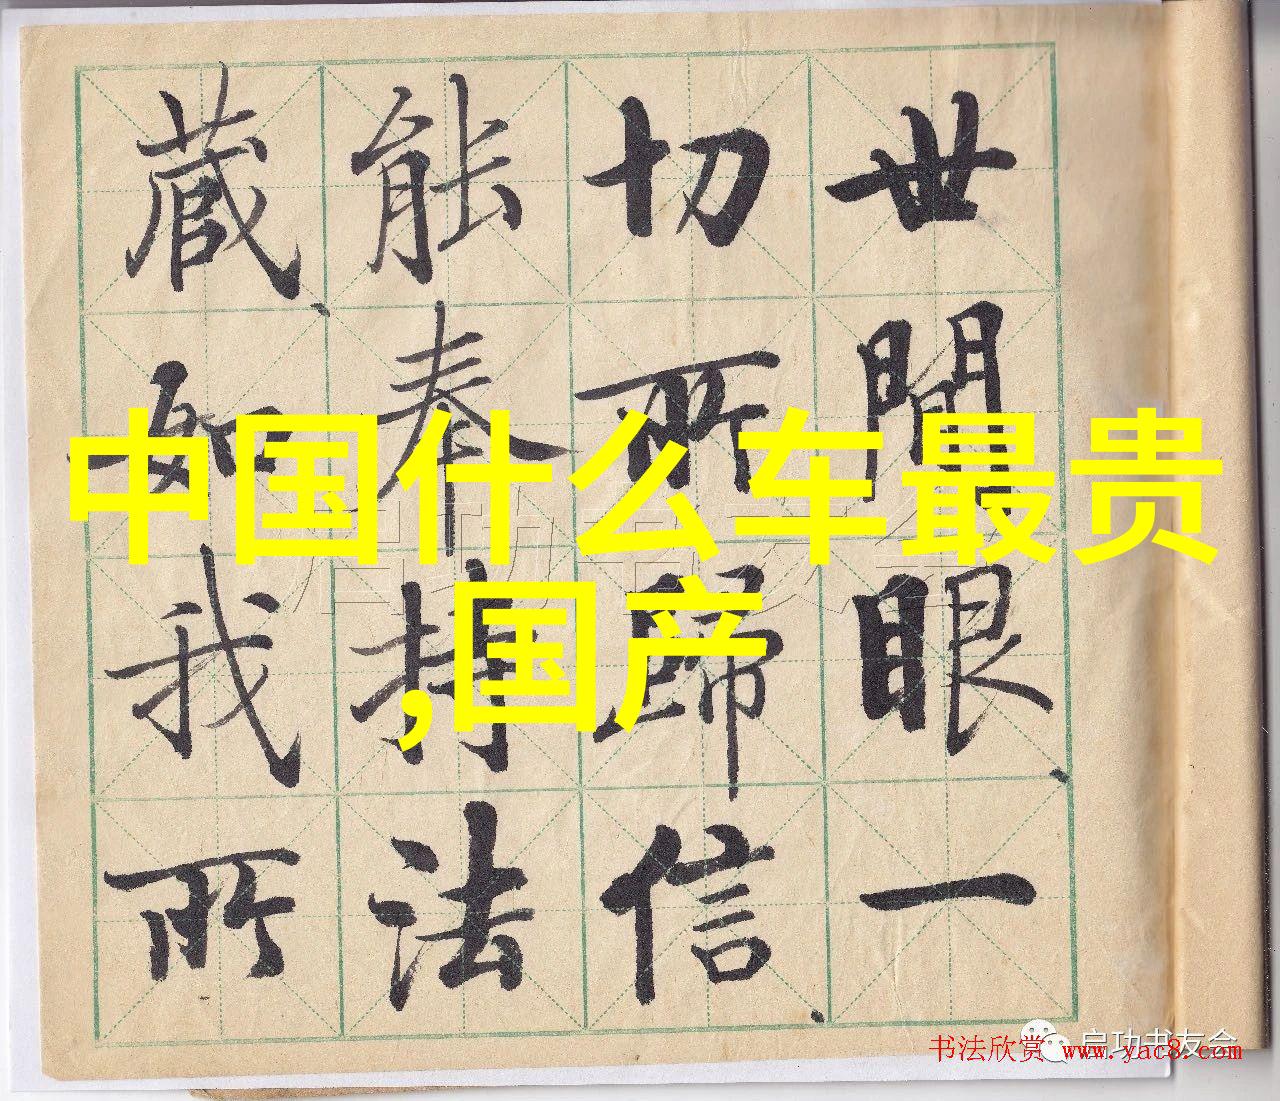 世間眼一
切所歸信
能奉持法
藏如我所
中国什么车最贵
,国产
启功书友会
启功书友会
书法欣赏 www.yac8.com